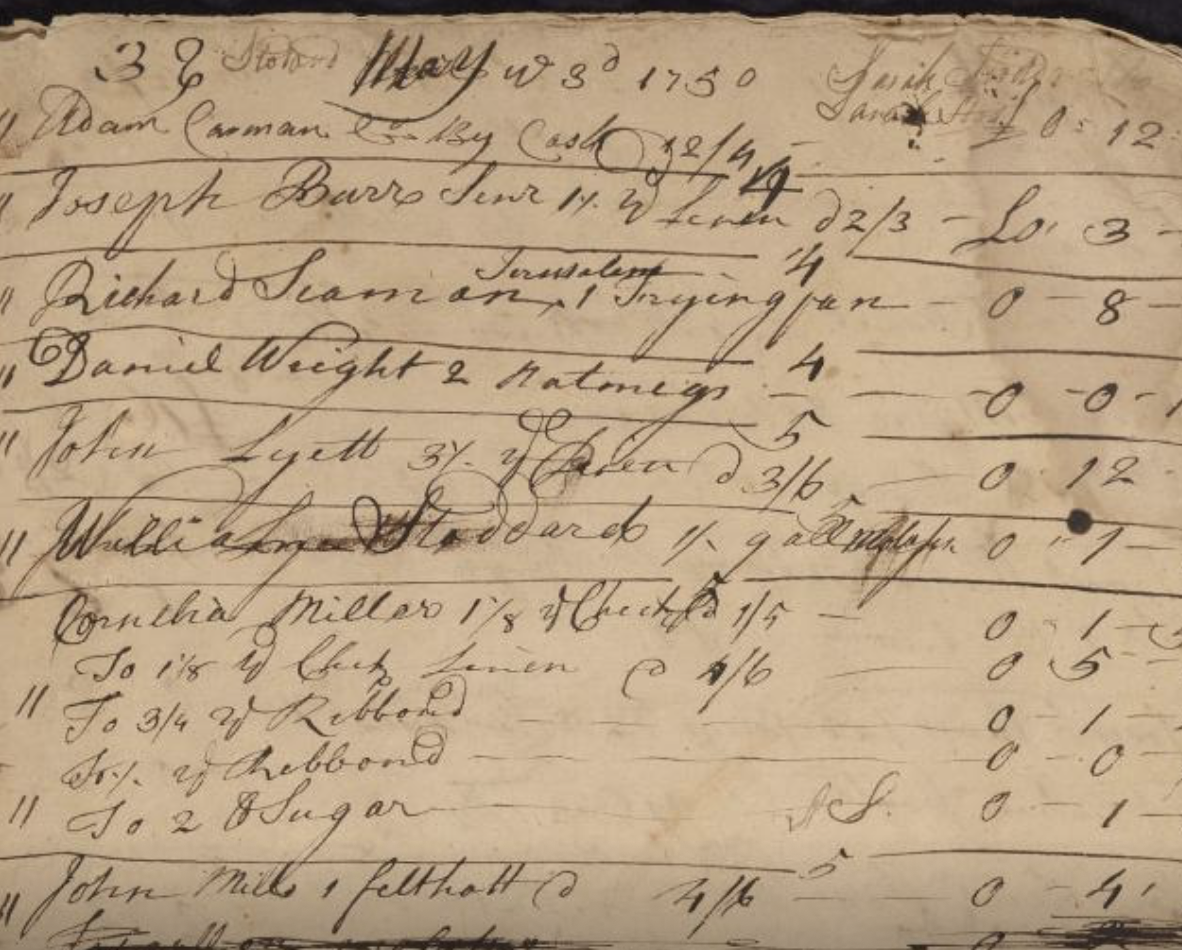 38 Stoddard May ye 3d 1750 Sarah
Sarah
" Adam Carman Cr By Cash 12/ £0 = 12
4
" Joseph Burr Senr 1½ yd Linen @ 2/3 - £0 3 -
4
Jerusalem
" Richard Seaman, 1 Frying pan - 0 - 8 -
4
" Daniel Wright 2 Natmegs - - 0 - 0 - 1
5
" John Lyett 3½ yd Linen @ 3/6 0 12
5
" William Stoddard ½ gall molases 0 " 1 -
5
Cornelia Millar 1⅛ yd Check @ 1/5 - 0 1 -
To 1⅛ yd Check Linen @ 4/6 - 0 5 -
" To 3/4 yd Ribbond - 0 - 1 -
To ½ yd Ribbond - 0 - 0
" To 2 lb Sugar S. 0 - 1 -
5
" John Mills 1 felthatt @ 4/6 - - 0 - 4